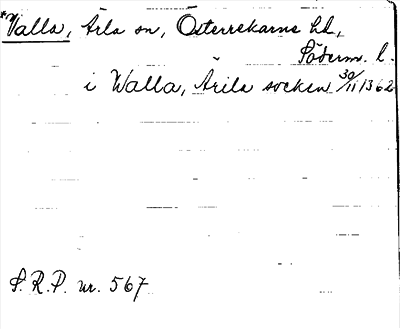 *Valla, Ärla sn, Österrekarne hd,
Söderm. l.
i Walla, Ärila socken 30/11 1362
S.R.P. nr. 567